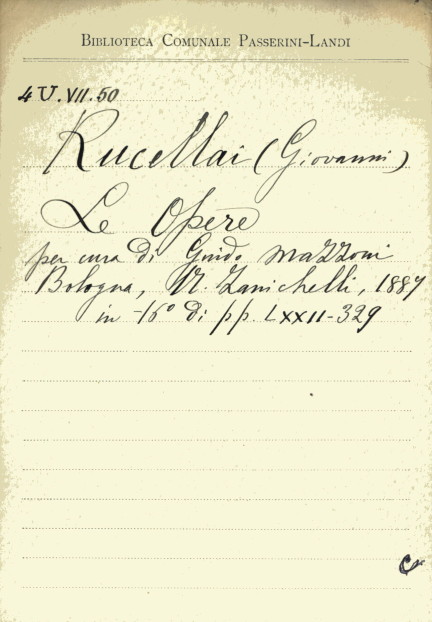 BIBLIOTECA COMUNALE PASSERINI-LANDI
4 U.VII.50
Rucellai (Giovanni)
Le Opere
per cura di Guido Mazzoni
Bologna, N. Zanichelli, 1887
in -16° di pp. LXXII-329